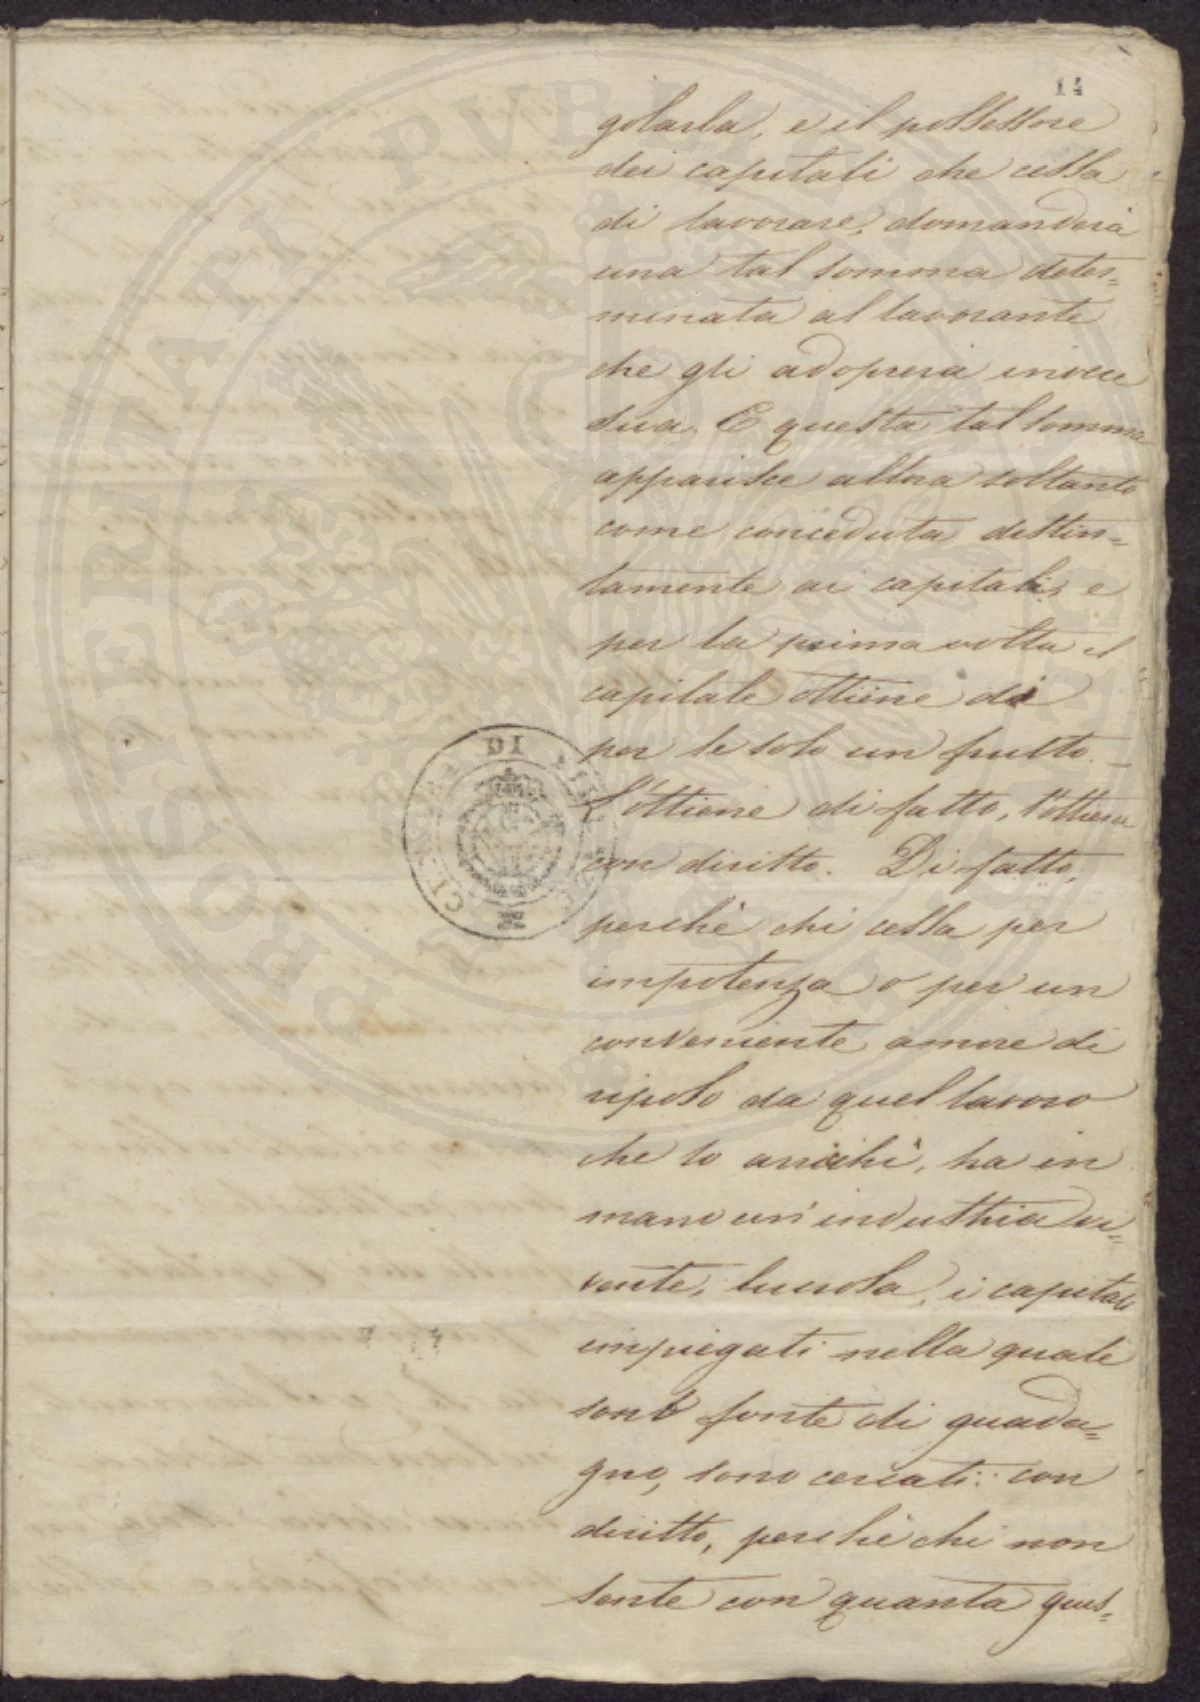 14
golarla, e il possessore
dei capitali che cessa
di lavorare, domanderà
una tal somma deter=
minata al lavorante
che gli adoprerà invece
sua. E questa tal somma
apparisce allora soltanto
come conceduta distin=
tamente ai capitali, e
per la prima volta il
capitale ottiene di
per se solo un frutto. _
L'ottiene di fatto, l'ottiene
con diritto. Di fatto,
perchè chi cessa per
impotenza o per un
conveniente amore di
riposo da quel lavoro
che lo arricchì, ha in
mano un'industria vi=
vente, lucrosa, i capitali
impiegati nella quale
sono fonte di guada=
gno, sono cercati: con
diritto, perchè chi non
sente con quanta gius=
PROSPERITATI PVBLICAE
DI